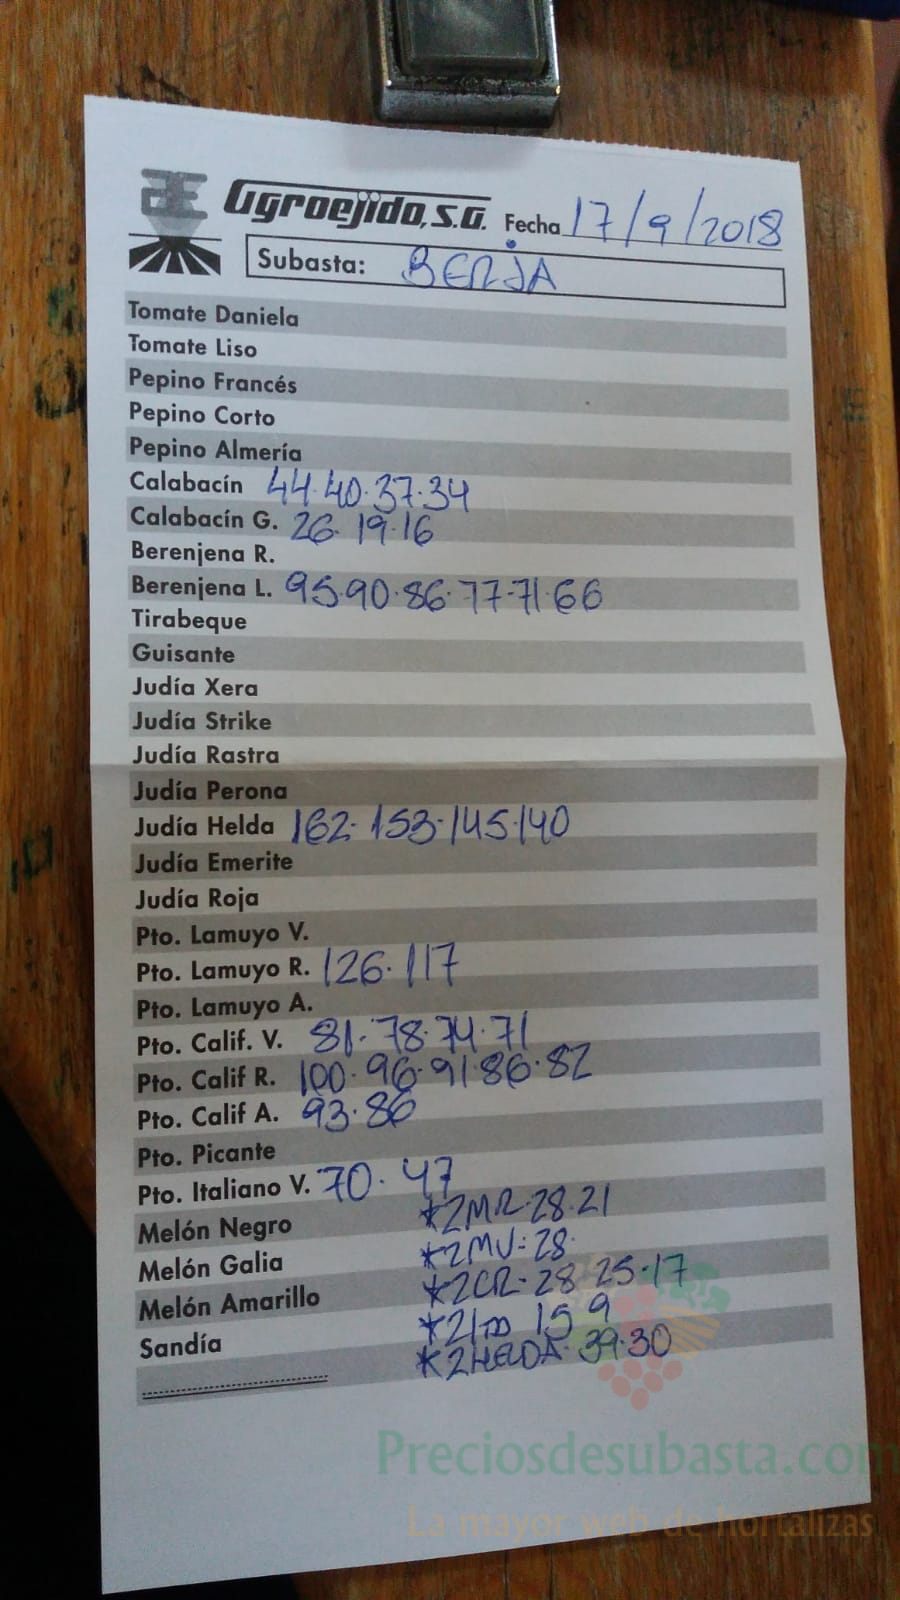 AE Agroejido, S.A. Fecha 17/9/2018
Subasta: BERJA
Tomate Daniela
Tomate Liso
Pepino Francés
Pepino Corto
Pepino Almería
Calabacín 44.40.37.34
Calabacín G. 26. 19.16
Berenjena R.
Berenjena L. 95.90.86.77.71.66
Tirabeque
Guisante
Judía Xera
Judía Strike
Judía Rastra
Judía Perona
Judía Helda 162. 153.145.140
Judía Emerite
Judía Roja
Pto. Lamuyo V.
Pto. Lamuyo R. 126.117
Pto. Lamuyo A.
Pto. Calif. V. 81.78.74.71
Pto. Calif R. 100.96.91.86.82
Pto. Calif A. 93.86
Pto. Picante
Pto. Italiano V. 70. 47
Melón Negro *2MR.28.21
Melón Galia *2MV:28.
Melón Amarillo *2CR.28 25.17
Sandía 15 9
*2HELDA.39.30
Preciosdesubasta.com
La mayor web de hortalizas